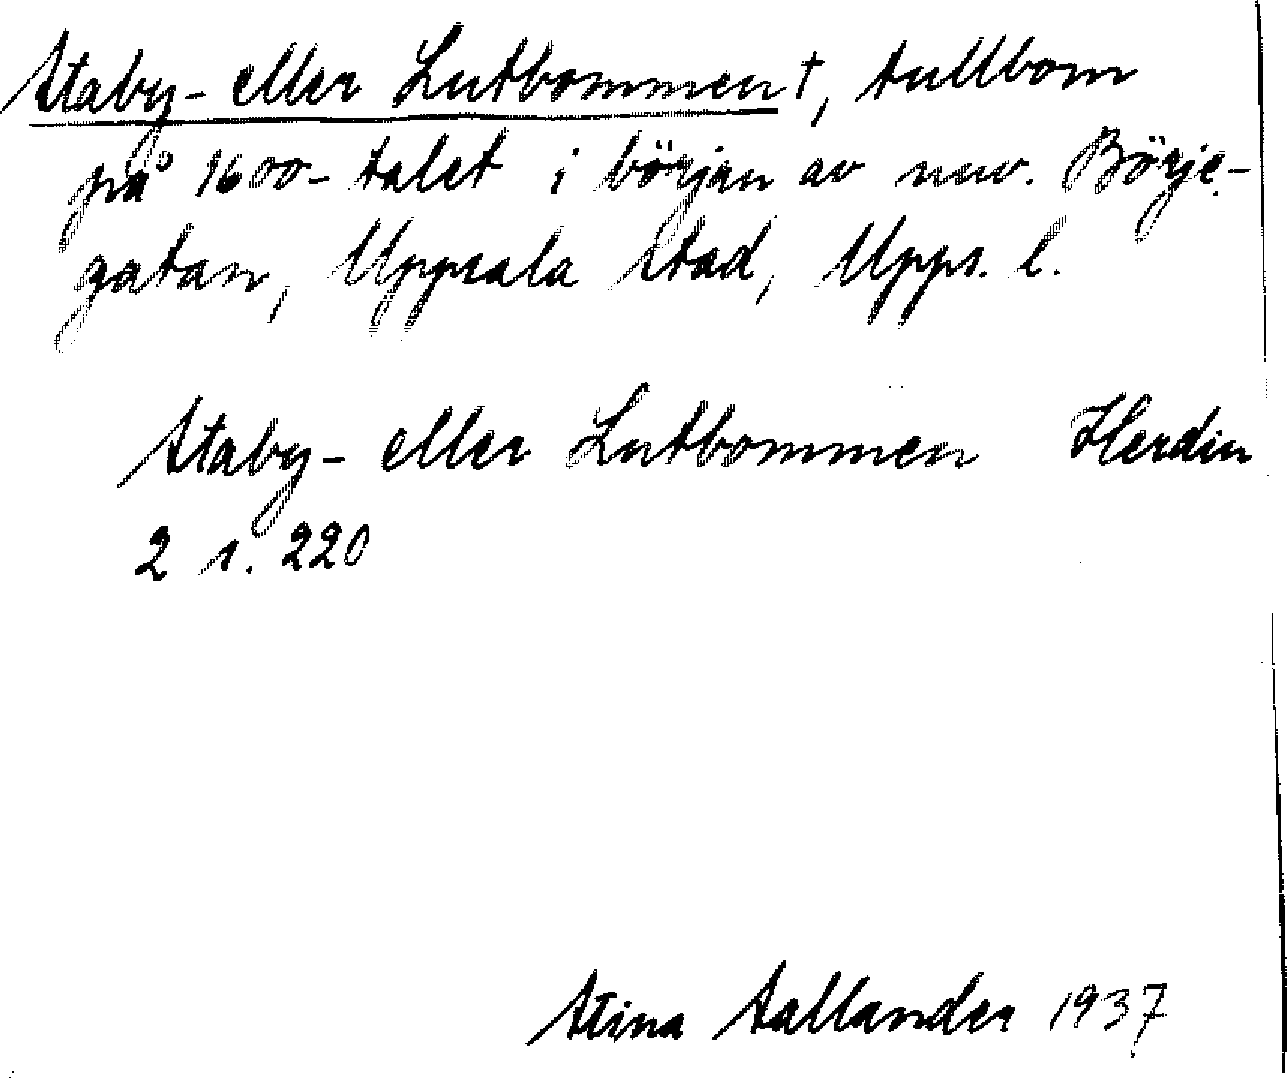 Staby- eller Lutbommen†, tullbom
på 1600-talet i början av nuv. Börje-
gatan, Uppsala stad, Upps. l.
Staby- eller Lutbommen Herdin
2 s. 220
Stina Sallander 1937